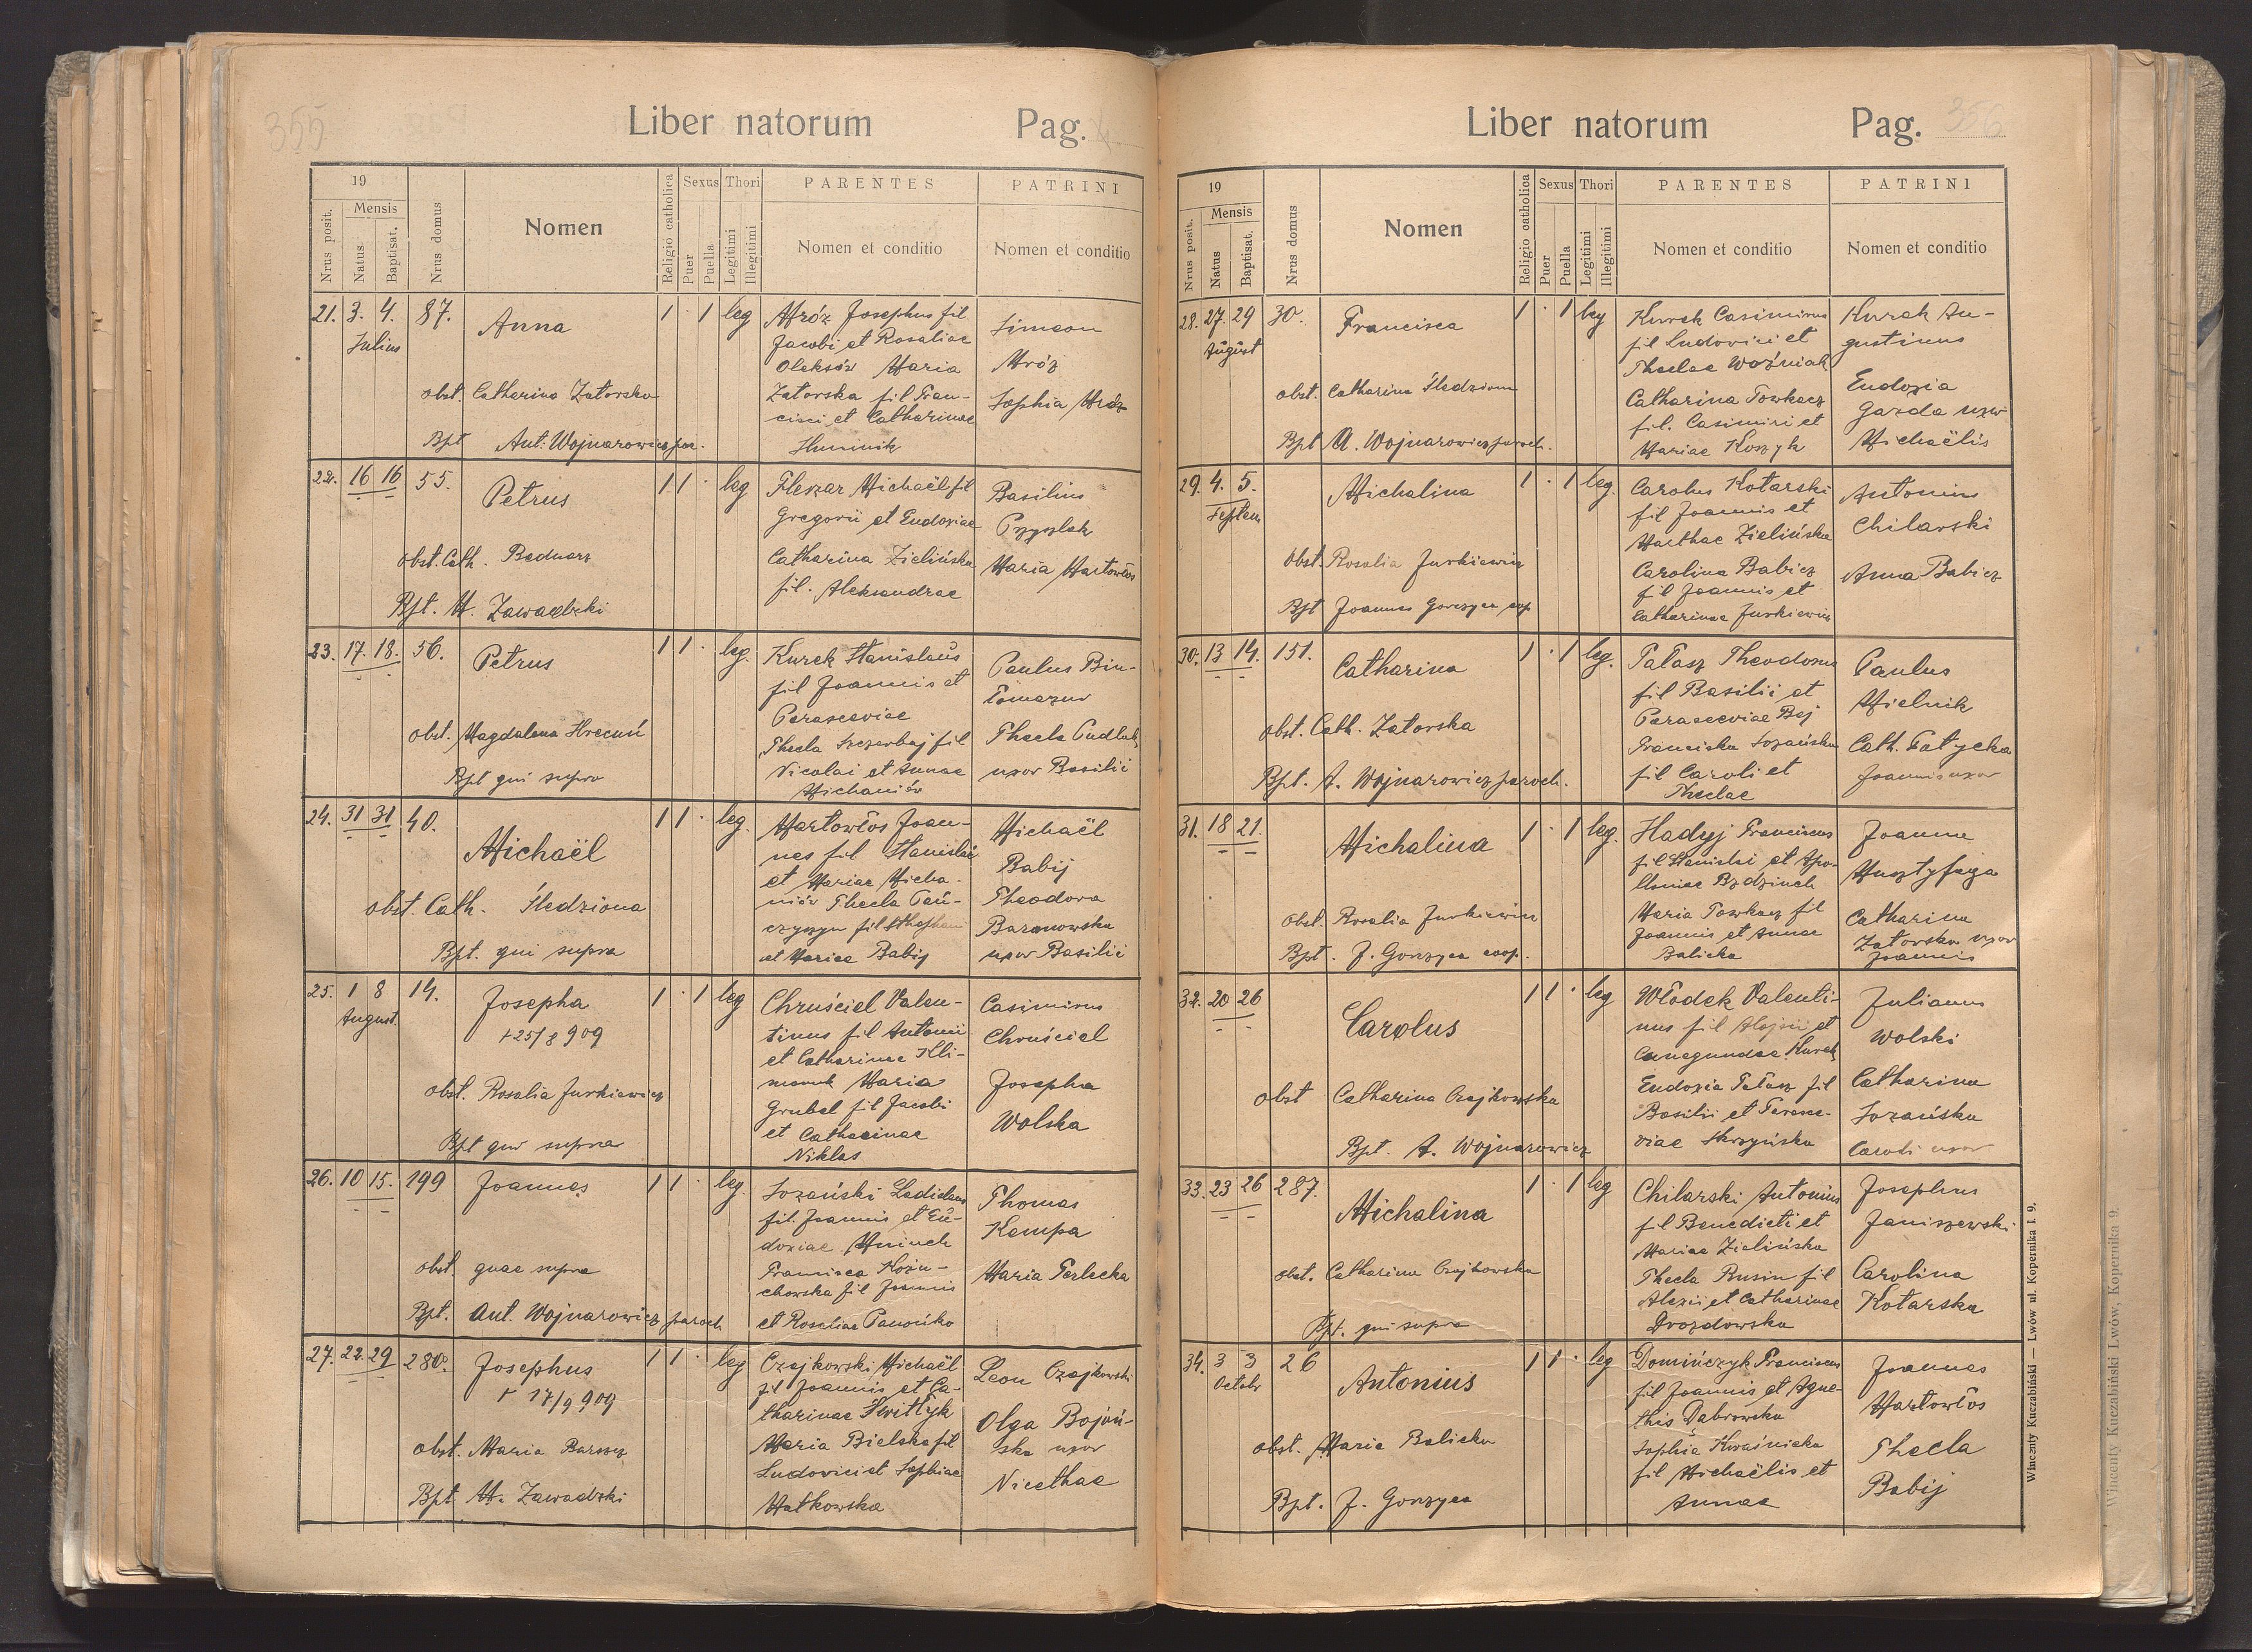 355
Liber natorum
Pag.
19
Mensis
Nrus posit.
Natus
Baptisat.
Nrus domus
Nomen
Religio catholica
Sexus
Puer
Puella
Thori
Legitimi
Illegitimi
PARENTES
Nomen et conditio
PATRINI
Nomen et conditio
21. 3. 4. 87.
Julius
Anna
1 · 1 leg
obst. Catharina Zatorska
Bpt Ant. Wojnarowicz par.
Mróz Josephus fil
Jacobi et Rosaliae
Oleksów Maria
Zatorska fil Fran-
cisci et Catharinae
Simeon
Mróz
Sophia Mróz
22. 16 16 55.
Petrus
1 1 · leg
obst. Cath. Bednarz
Bpt. M. Zawadzki
Fleszar Michaël fil
Gregorii et Eudoxiae
Catharina Zielińska
fil. Aleksandrae
Basilius
Przyszlak
Maria Martowłos
23. 17. 18. 56.
Petrus
1 1 · leg.
obst. Magdalena Hrecuń
Bpt qui supra
Kurek Stanislaus
fil Joannis et
Parasceviae
Thecla Szczerbaj fil
Nicolai et Annae
Michaniów
Paulus Bia-
Thecla Pudlak
uxor Basilii
24. 31 31 40.
Michaël
1 1 · leg.
obst. Cath. Śledziona
Bpt. qui supra
Martowłos Joan-
nes fil Stanislai
et Mariae Micha-
niów Thecla Pań-
czyszyn fil Stephani
et Mariae Babij
Michaël
Babij
Theodora
Baranowska
uxor Basilii
25. 1 8 14.
August.
Josepha
+ 25/8 909
1 · 1 leg
obst. Rosalia Jurkiewicz
Bpt qui supra
Chruściel Valen-
tinus fil Antonii
et Catharinae Kli-
Maria
Grubel fil Jacobi
et Catharinae
Niklas
Casimirus
Chruściel
Josepha
Wolska
26. 10 15. 199
Joannes
1 1 · leg.
obst. quae supra
Bpt. Ant. Wojnarowicz paroch
Sozański Ladislaus
fil. Joannis et Eu-
doxiae Mninch
Francisca Kożu-
chowska fil Joannis
et Rosaliae Panońko
Thomas
Kempa
Maria Terlecka
27. 22. 29 280.
Josephus
+ 17/9 909
1 1 · leg
obst. Maria Barszcz
Bpt M. Zawadzki
Czajkowski Michaël
fil Joannis et Ca-
tharinae Kwitłyk
Maria Bielska fil
Ludovici et Sophiae
Małkowska
Leon Czajkowski
Olga Bojań-
ska uxor
Nicethae
Liber natorum
Pag. 356
19
Mensis
Nrus posit.
Natus
Baptisat.
Nrus domus
Nomen
Religio catholica
Sexus
Puer
Puella
Thori
Legitimi
Illegitimi
PARENTES
Nomen et conditio
PATRINI
Nomen et conditio
28. 27. 29 30.
August
Francisca
1 · 1 leg
obst. Catharina Śledziona
Bpt A. Wojnarowicz paroch.
Kurek Casimirus
fil Ludovici et
Theclae Woźniak
Catharina Towkacz
fil. Casimiri et
Mariae Koszyk
Kurek Au-
gustinus
Eudoxia
Gazda uxor
Michaëlis
29. 4. 5.
Septem
Michalina
1 · 1 leg.
Obst. Rosalia Jurkiewicz
Bpt Joannes Gorczyca coop
Carolus Kotarski
fil Joannis et
Marthae Zielińska
Carolina Babicz
fil Joannis et
Catharinae Jurkiewicz
Antonius
Chilarski
Anna Babicz
30. 13 14. 151.
Catharina
1 · 1 leg.
obst. Cath. Zatorska
Bpt. A. Wojnarowicz paroch.
Pałasz Theodorus
fil Basilii et
Parasceviae Bej
Franciska Sozańska
fil Caroli et
Theclae
Paulus
Mielnik
Cath. Fatycka
Joannis uxor
31. 18 21.
Michalina
1 · 1 leg.
Obst. Rosalia Jurkiewicz
Bpt. J. Gorczyca coop.
Hadyj Franciscus
fil Stanislai et Apo-
lloniae Bzdzinch
Maria Towkacz fil
Joannis et Annae
Balicka
Joanna
Musztyfaga
Catharina
Zatorska uxor
Joannis
32. 20 26
Carolus
1 1 · leg
obst Catharina Czajkowska
Bpt. A. Wojnarowicz
Włodek Valenti-
nus fil Alojsii et
Cunegundae Kurek
Eudoxia Pałasz fil
Basilii et Parasce-
viae Skrzyńska
Julianus
Wolski
Catharina
Sozańska
Caroli uxor
33. 23 26 287.
Michalina
1 · 1 leg
obst. Catharina Czajkowska
Bpt. qui supra
Chilarski Antonius
fil Benedicti et
Mariae Zielińska
Thecla Rusin fil
Alexii et Catharinae
Drozdowska
Josephus
Janiszewski
Carolina
Kotarska
34. 3 3 26
Octobr
Antonius
1 1 · leg
obst. Maria Balicka
Bpt. J. Gorczyca
Domińczyk Franciscus
fil Joannis et Agne-
this Dąbrowska
Sophia Kwaśnicka
fil Michaëlis et
Annae
Joannes
Martowłos
Thecla
Babij
Wincenty Kuczabiński — Lwów ul. Kopernika l. 9.
Wincenty Kuczabiński Lwów, Kopernika 9.